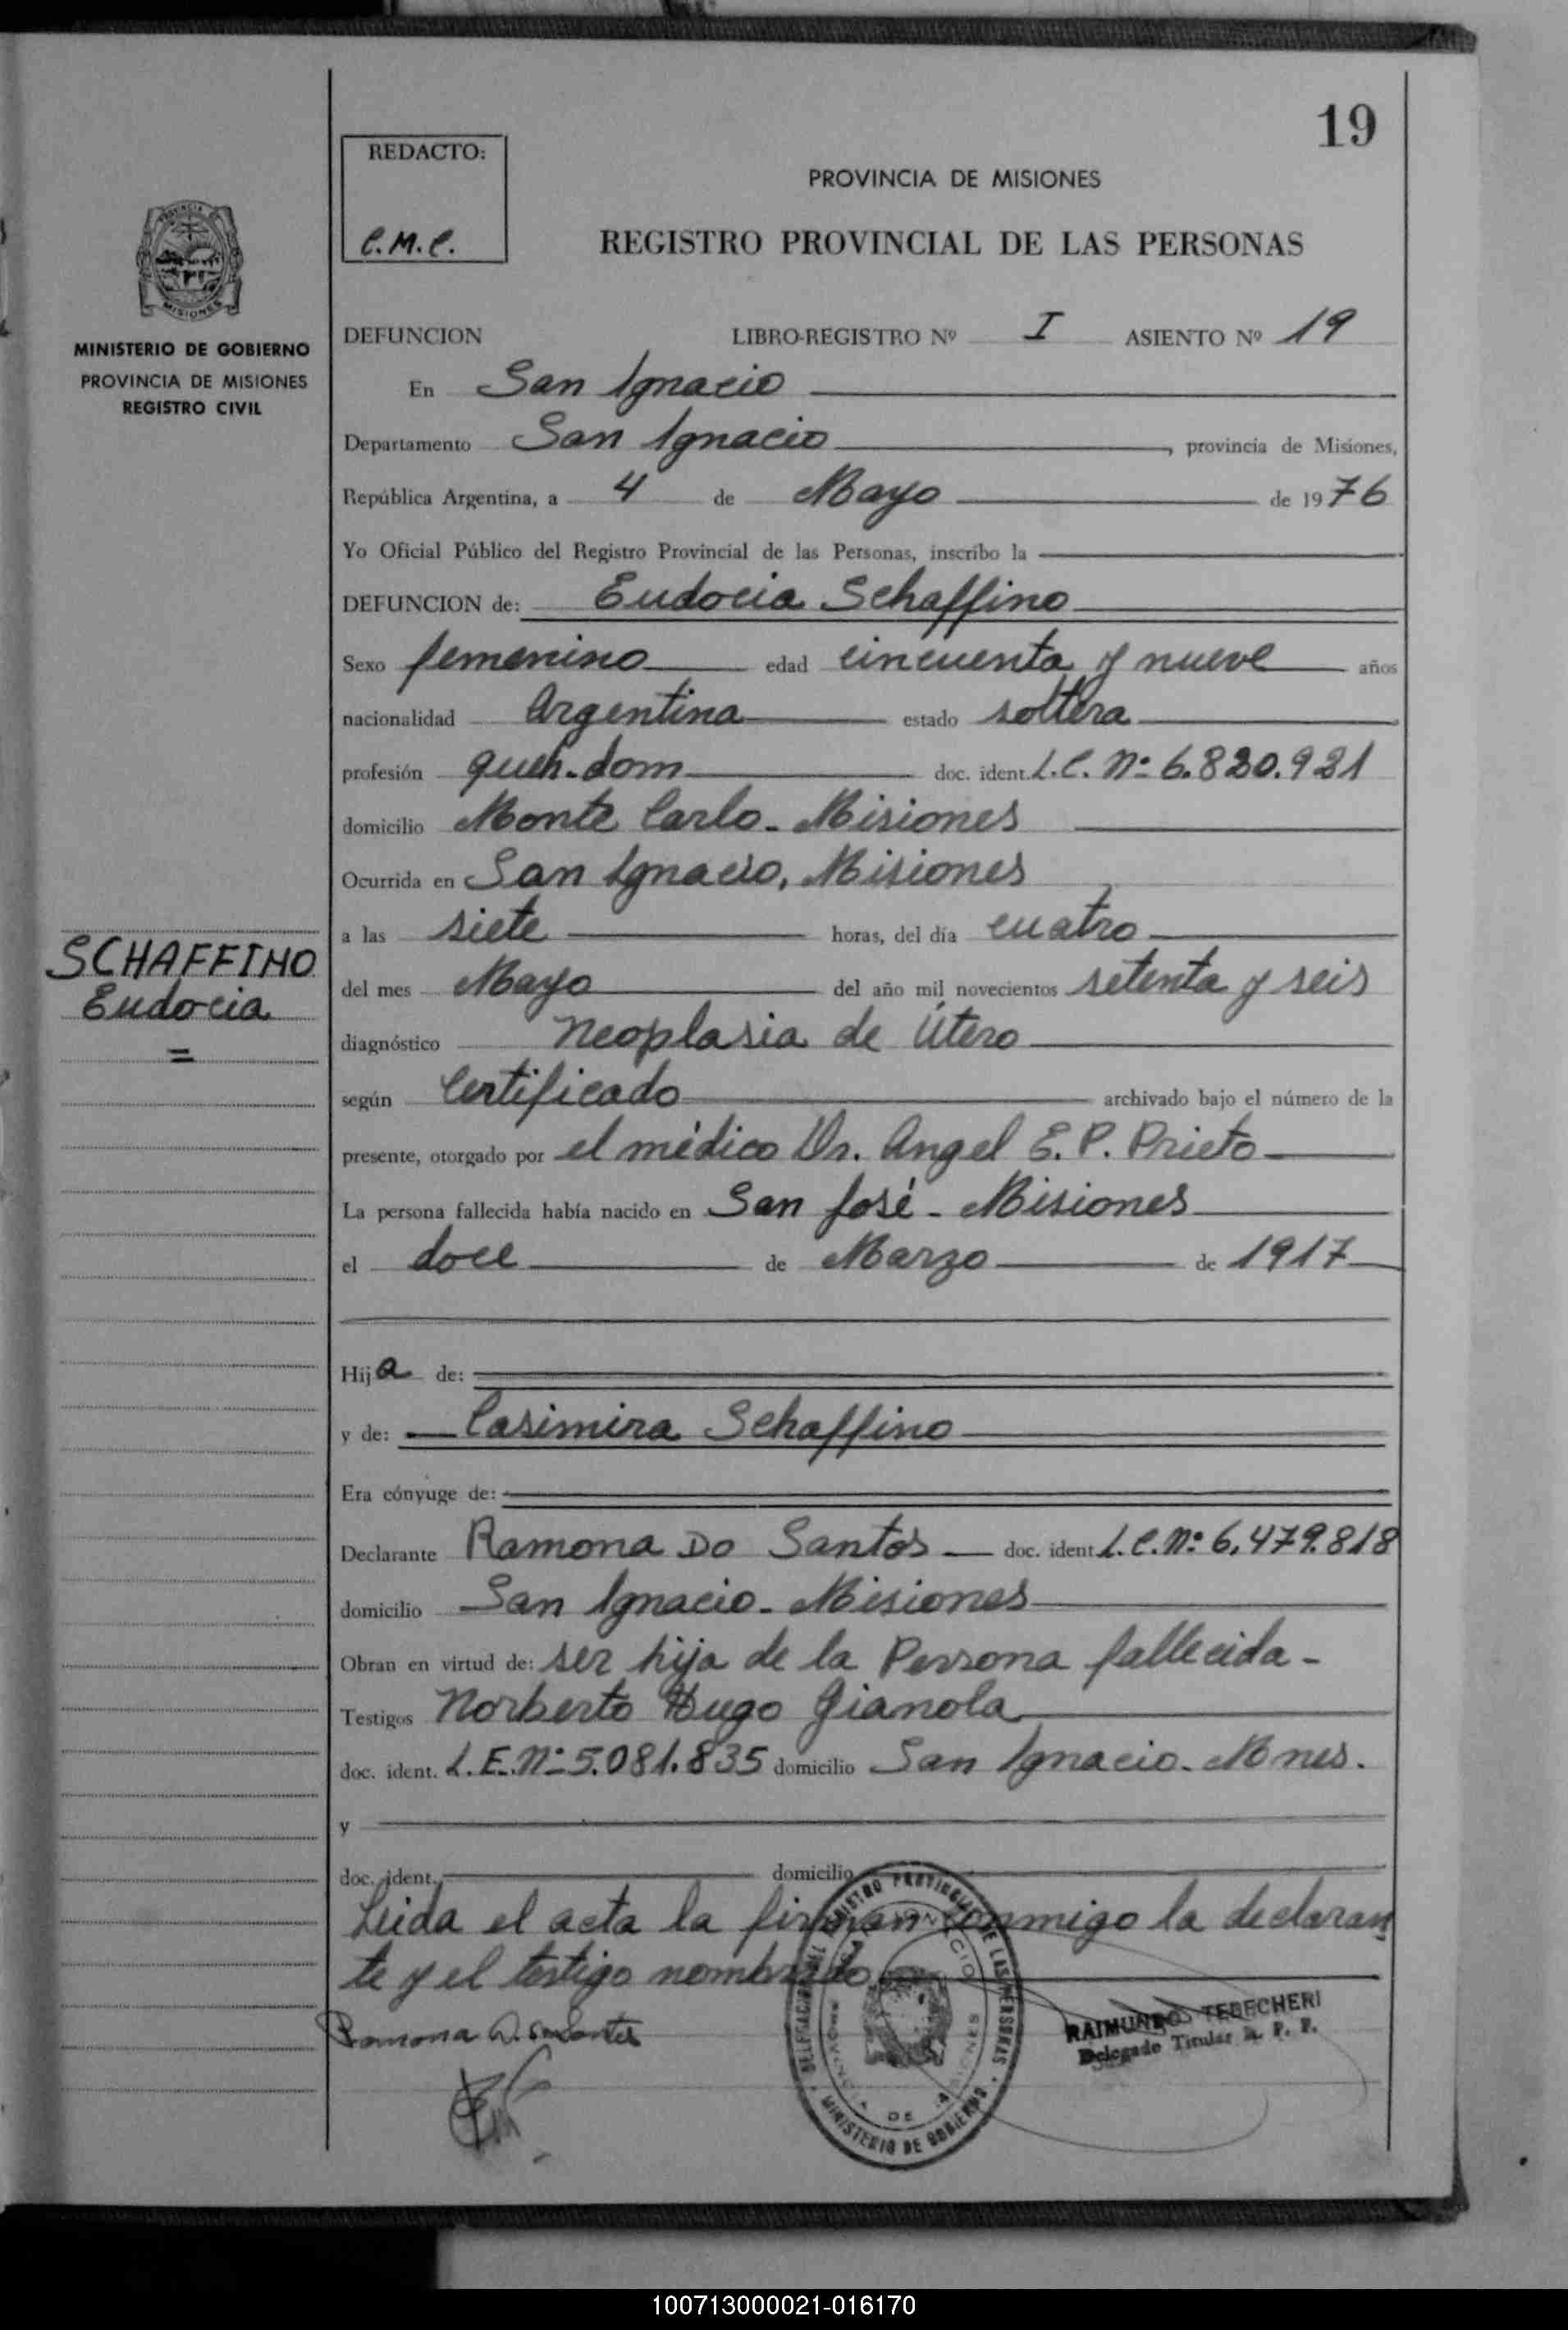 19
REDACTO:
C.M.C.
PROVINCIA DE MISIONES
REGISTRO PROVINCIAL DE LAS PERSONAS
PROVINCIA DE
MISIONES
MINISTERIO DE GOBIERNO
PROVINCIA DE MISIONES
REGISTRO CIVIL
DEFUNCION LIBRO-REGISTRO Nº I ASIENTO Nº 19
En San Ignacio
Departamento San Ignacio, provincia de Misiones,
República Argentina, a 4 de Mayo de 1976
Yo Oficial Público del Registro Provincial de las Personas, inscribo la
DEFUNCION de: Eudocia Schaffino
Sexo femenino edad cincuenta y nueve años
nacionalidad Argentina estado soltera
profesión queh. dom doc. ident. L.C. Nº 6.820.921
domicilio Monte Carlo - Misiones
Ocurrida en San Ignacio, Misiones
a las siete horas, del día cuatro
SCHAFFINO
Eudocia
=
del mes Mayo del año mil novecientos setenta y seis
diagnóstico Neoplasia de Útero
según Certificado archivado bajo el número de la
presente, otorgado por el médico Dr. Angel E. P. Prieto
La persona fallecida había nacido en San José - Misiones
el doce de Marzo de 1917
Hija de:
y de: Casimira Schaffino
Era cónyuge de:
Declarante Ramona Do Santos doc. ident. L.C. Nº 6,479.818
domicilio San Ignacio - Misiones
Obran en virtud de: ser hija de la Persona fallecida -
Testigos Norberto Hugo Gianola
doc. ident. L.E. Nº 5.081.835 domicilio San Ignacio - Mnes.
y
doc. ident. domicilio
Leida el acta la firman conmigo la declaran
te y el testigo nombrado
REGISTRO PROVINCIAL DE LAS PERSONAS
MINISTERIO DE GOBIERNO
RAIMUNDO TEDECHERI
Delegado Titular R. P. P.
100713000021-016170